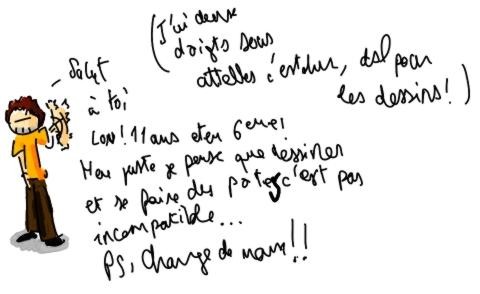 (J'ai deux
doigts sous
attelles c'est dur, dsl pour
les dessins!)
Salut
à toi
LOW! 11 ans et en 6ème!
Hem juste je pense que dessiner
et se faire des potes c'est pas
incompatible...
PS, change de nom!!